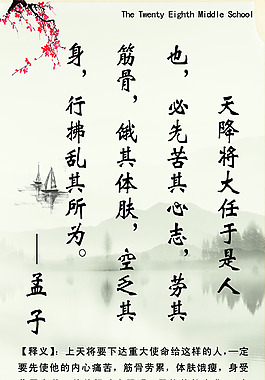 The Twenty Eighth Middle School
天降将大任于是人
也，必先苦其心志，劳其
筋骨，饿其体肤，空乏其
身，行拂乱其所为。
——孟子
【释义】：上天将要下达重大使命给这样的人，一定
要先使他的内心痛苦，筋骨劳累，体肤饿瘦，身受